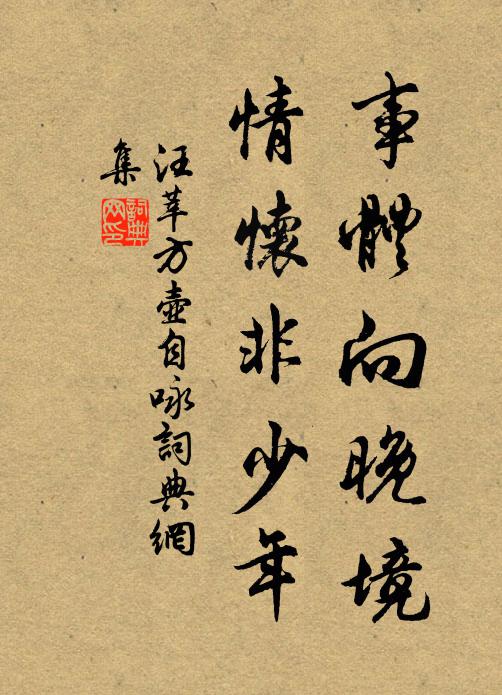 事體向晚境
情懷非少年
汪莘方壺自咏詞典網
集
詞典網印